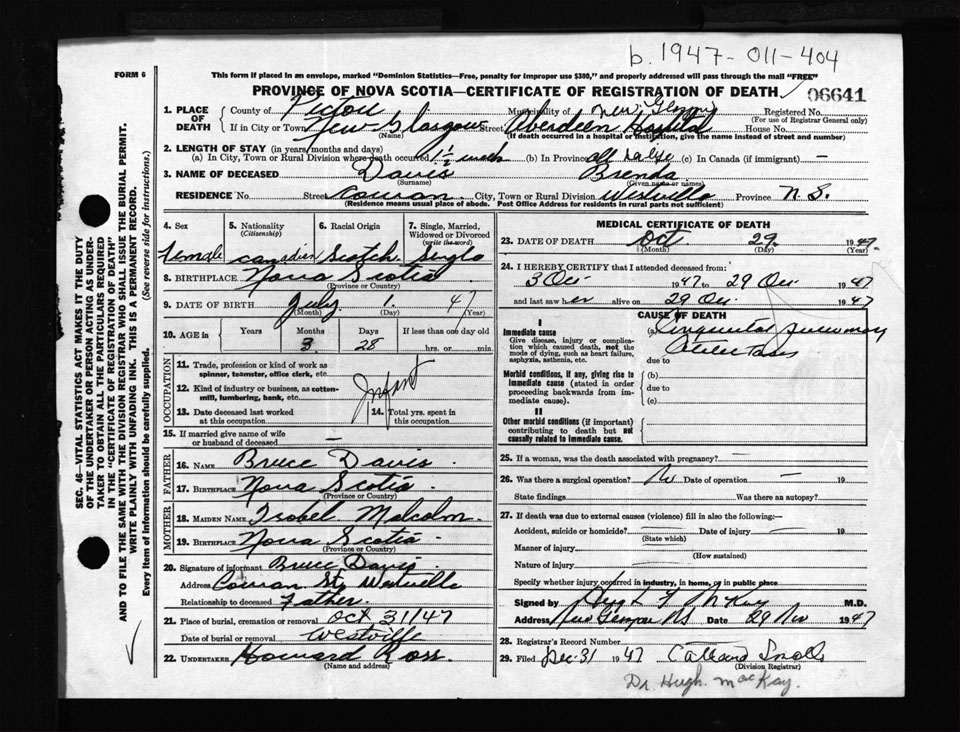 b. 1947-011-404
FORM 6
This form if placed in an envelope, marked "Dominion Statistics—Free, penalty for improper use $300," and properly addressed will pass through the mail "FREE"
PROVINCE OF NOVA SCOTIA—CERTIFICATE OF REGISTRATION OF DEATH
06641
1. PLACE OF DEATH County of Pictou Municipality of New Registered No.
(For use of Registrar General only)
If in City or Town New-Glasgow Street Aberdeen Hospital House No.
(Name) (If death occurred in a hospital or institution, give the name instead of street and number)
2. LENGTH OF STAY (in years, months and days)
(a) In City, Town or Rural Division where death occurred 1½ (b) In Province all (c) In Canada (if immigrant) —
3. NAME OF DECEASED Davis Brenda
(Surname) (Given name or names)
RESIDENCE No. Street Cowan City, Town or Rural Division Westville Province N S.
(Residence means usual place of abode. Post Office Address for residents in rural parts not sufficient)
4. Sex
Female
5. Nationality
(Citizenship)
Canadian
6. Racial Origin
Scotch
7. Single, Married, Widowed or Divorced
(write the word)
Single
8. BIRTHPLACE Nova Scotia
(Province or Country)
9. DATE OF BIRTH July 1 47
(Month) (Day) (year)
10. AGE in Years Months Days If less than one day old
3 28 hrs. or min.
OCCUPATION
11. Trade, profession or kind of work as spinner, teamster, office clerk, etc.
12. Kind of industry or business, as cotton-mill, lumbering, bank, etc.
Infant
13. Date deceased last worked at this occupation
14. Total yrs. spent in this occupation
15. If married give name of wife or husband of deceased —
FATHER
16. NAME Bruce Davis
17. BIRTHPLACE Nova Scotia
(Province or Country)
MOTHER
18. MAIDEN NAME Isobel Malcolm
19. BIRTHPLACE Nova Scotia
(Province or Country)
20. Signature of informant Bruce Davis
Address Cowan St, Westville
Relationship to deceased Father.
21. Place of burial, cremation or removal Oct 31/47
Date of burial or removal Westville
22. UNDERTAKER Howard Ross
(Name and address)
MEDICAL CERTIFICATE OF DEATH
23. DATE OF DEATH Oct 29 1947
(Month) (Day) (Year)
24. I HEREBY CERTIFY that I attended deceased from:
3 Oct 1947 to 29 Oct 1947
and last saw her alive on 29 Oct 1947
CAUSE OF DEATH
I
Immediate cause (a)
Give disease, injury or complication which caused death, not the mode of dying, such as heart failure, asphyxia, asthenia, etc.
due to
Morbid conditions, if any, giving rise to immediate cause (stated in order proceeding backwards from immediate cause).
(b)
due to
(c)
II
Other morbid conditions (if important) contributing to death but not causally related to immediate cause.
25. If a woman, was the death associated with pregnancy? —
26. Was there a surgical operation? No Date of operation — 19
State findings Was there an autopsy?
27. If death was due to external causes (violence) fill in also the following:—
Accident, suicide or homicide? Date of injury — 19
(State which)
Manner of injury
(How sustained)
Nature of injury
Specify whether injury occurred in industry, in home, or in public place
Signed by Hugh McKay M.D.
Address New NS Date 29 Nov 1947
28. Registrar's Record Number
29. Filed Dec 31 1947
(Division Registrar)
Dr. Hugh. MacKay.
SEC. 46—VITAL STATISTICS ACT MAKES IT THE DUTY OF THE UNDERTAKER OR PERSON ACTING AS UNDERTAKER TO OBTAIN ALL THE PARTICULARS REQUIRED IN THE "CERTIFICATE OF REGISTRATION OF DEATH" AND TO FILE THE SAME WITH THE DIVISION REGISTRAR WHO SHALL ISSUE THE BURIAL PERMIT.
WRITE PLAINLY WITH UNFADING INK. THIS IS A PERMANENT RECORD.
Every item of information should be carefully supplied. (See reverse side for instructions.)